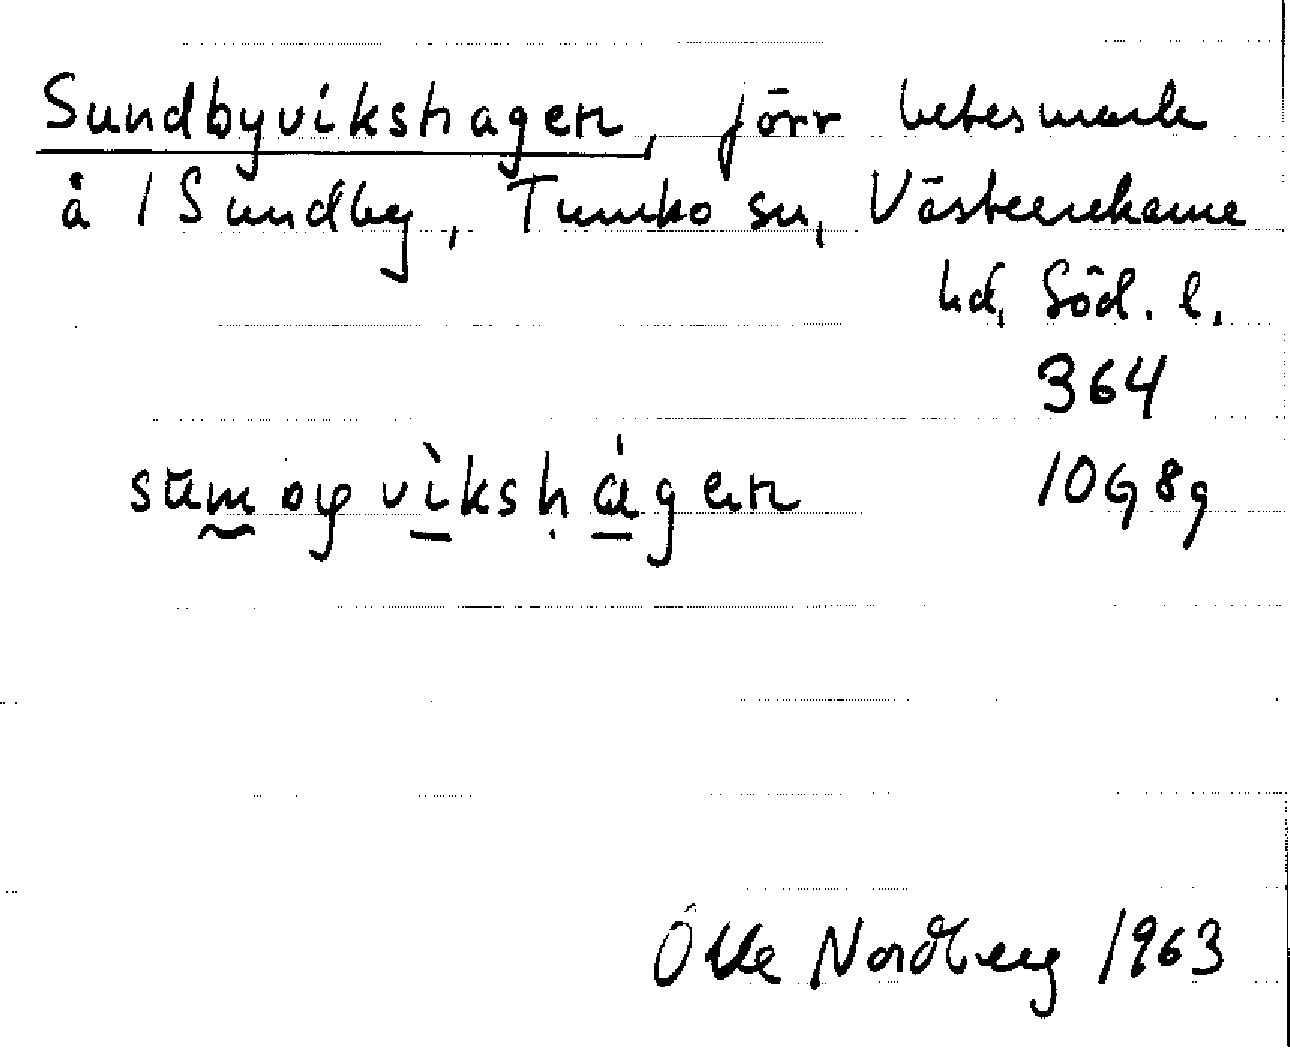 Sundbyvikshagen, förr betesmark
å 1 Sundby, Tumbo sn, Västerrekarne
hd, Söd. l.
364
10G 8g
Olle Nordberg 1963